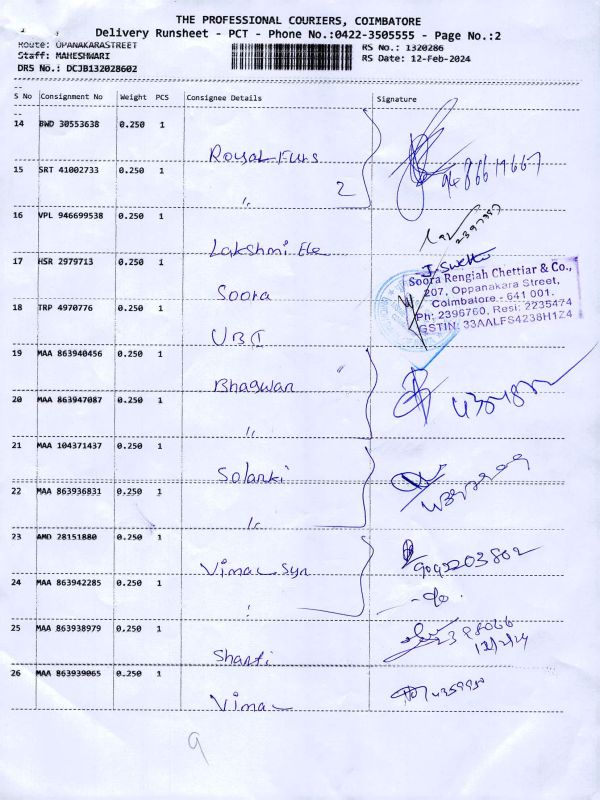 THE PROFESSIONAL COURIERS, COIMBATORE
Delivery Runsheet - PCT - Phone No.:0422-3505555 - Page No.:2
Route: OPANAKARASTREET
RS No.: 1320286
Staff: MAHESHWARI
RS Date: 12-Feb-2024
DRS No.: DCJB132028602
S No Consignment No Weight PCS Consignee Details Signature
14 BWD 30553638 0.250 1
Royal Furs
15 SRT 41002733 0.250 1
2
16 VPL 946699538 0.250 1
Lakshmi Ele
17 HSR 2979713 0.250 1
Soora
J. Swetha
Soora Rengiah Chettiar & Co.,
207, Oppanakara Street,
Coimbatore - 641 001.
Ph: 2396760, Resi: 2235474
GSTIN: 33AALFS4238H1Z4
18 TRP 4970776 0.250 1
UBI
19 MAA 863940456 0.250 1
Bhagwan "
20 MAA 863947087 0.250 1
21 MAA 104371437 0.250 1
Solanki
22 MAA 863936831 0.250 1
23 AMD 28151880 0.250 1
Vimal Syn
9095203802
24 MAA 863942285 0.250 1
25 MAA 863938979 0.250 1
Shanti
2398066
12/2/24
26 MAA 863939065 0.250 1
Vimal
9